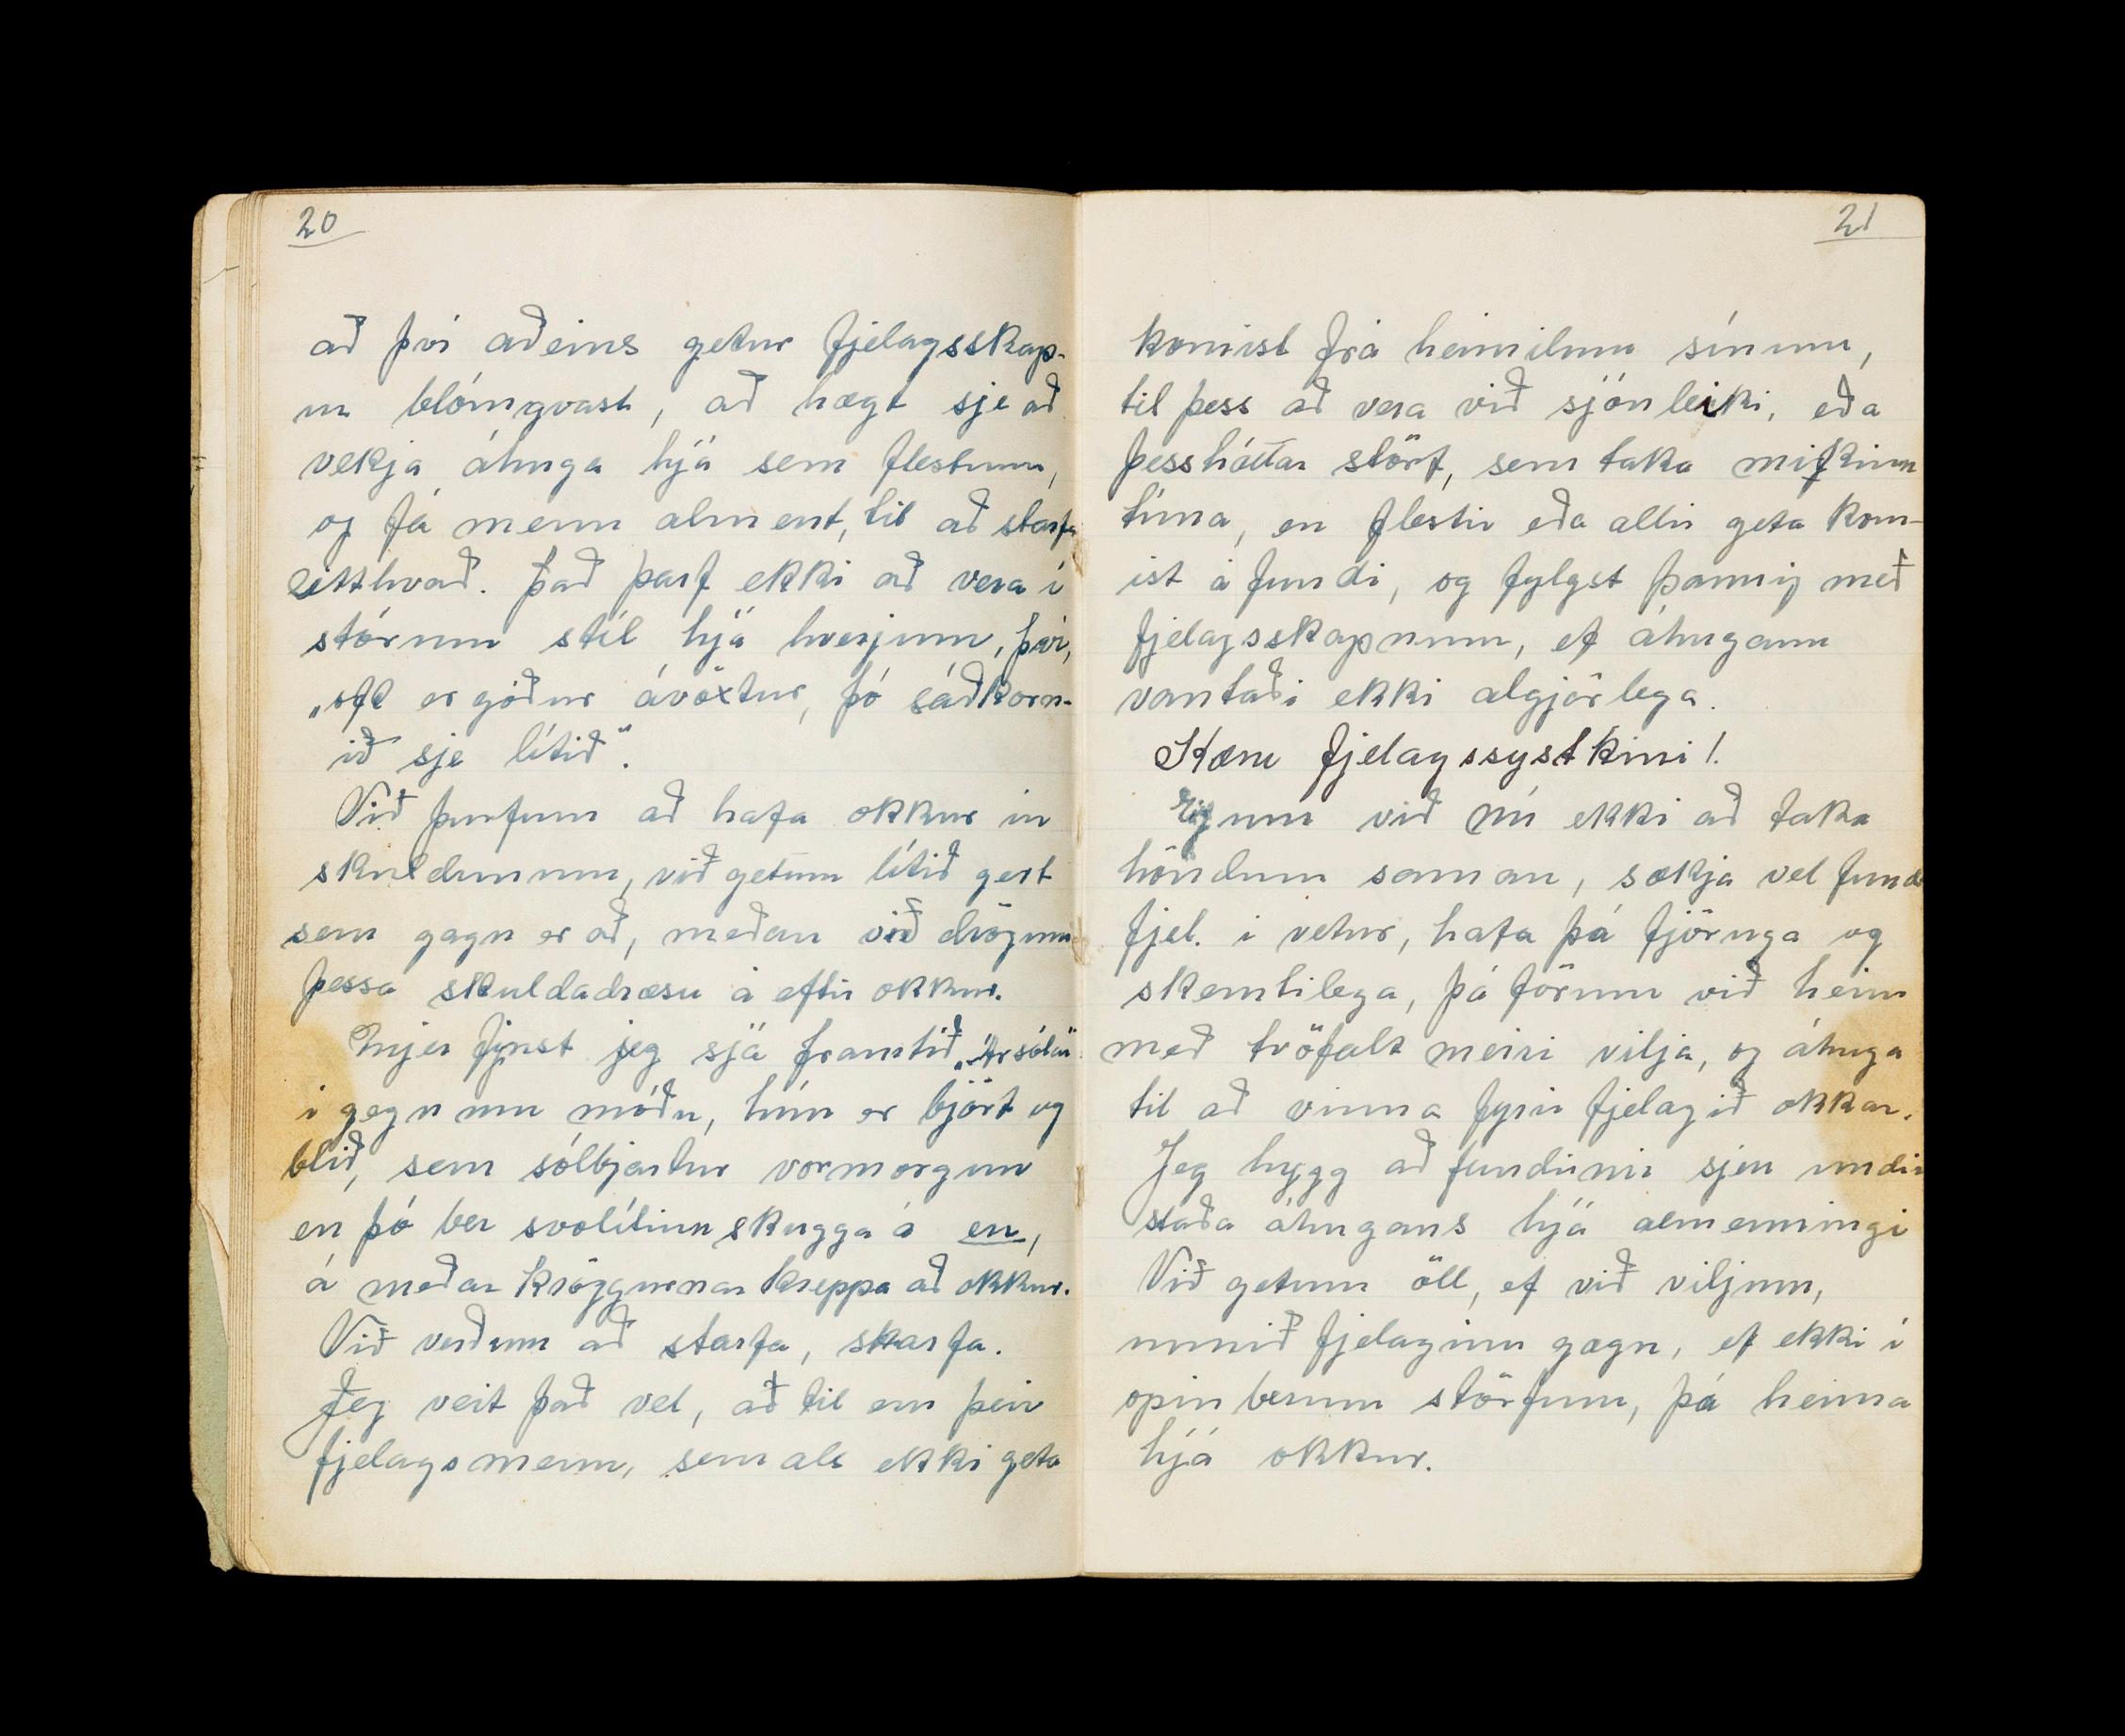 20
að því aðeins getur fjelagsskap-
ur blómgvast, að hægt sje að
vekja áhuga hjá sem flestum,
og fá menn alment, til að starfa
eitthvað. Það þarf ekki að vera í
stórum stíl hjá hverjum, því,
„oft er góður ávöxtur, þó sáðkorn-
ið sje lítið“.
Við þurfum að hafa okkur úr
skuldunum, við getum lítið gert
sem gagn er að, meðan við drögum
þessa skuldadræsu á eftir okkur.
Mjer finst jeg sjá framtíð
í gegnum móðu, hún er björt og
blíð, sem sólbjartur vormorgun
en þó ber svolítinn skugga á en,
á meðan kröggurnar kreppa að okkur.
Við verðum að starfa, starfa.
Jeg veit það vel, að til eru þeir
fjelagsmenn, sem als ekki geta
21
komist frá heimilum sínum,
til þess að vera við sjónleiki, eða
þessháttar störf, sem taka mikinn
tíma, en flestir eða allir geta kom-
ist á fundi, og fylgst þannig með
fjelagsskapnum, ef áhugann
vantaði ekki algjörlega.
Kæru fjelagssystkini!.
Eigum við nú ekki að taka
höndum saman, sækja vel fundi
fjel. í vetur, hafa þá fjöruga og
skemtilega, þá förum við heim
með tvöfalt meiri vilja, og áhuga
til að vinna fyrir fjelagið okkar.
Jeg hygg að fundirnir sjeu undir
staða áhugans hjá almenningi
Við getum öll, ef við viljum,
unnið fjelaginu gagn, ef ekki í
opinberum störfum, þá heima
hjá okkur.